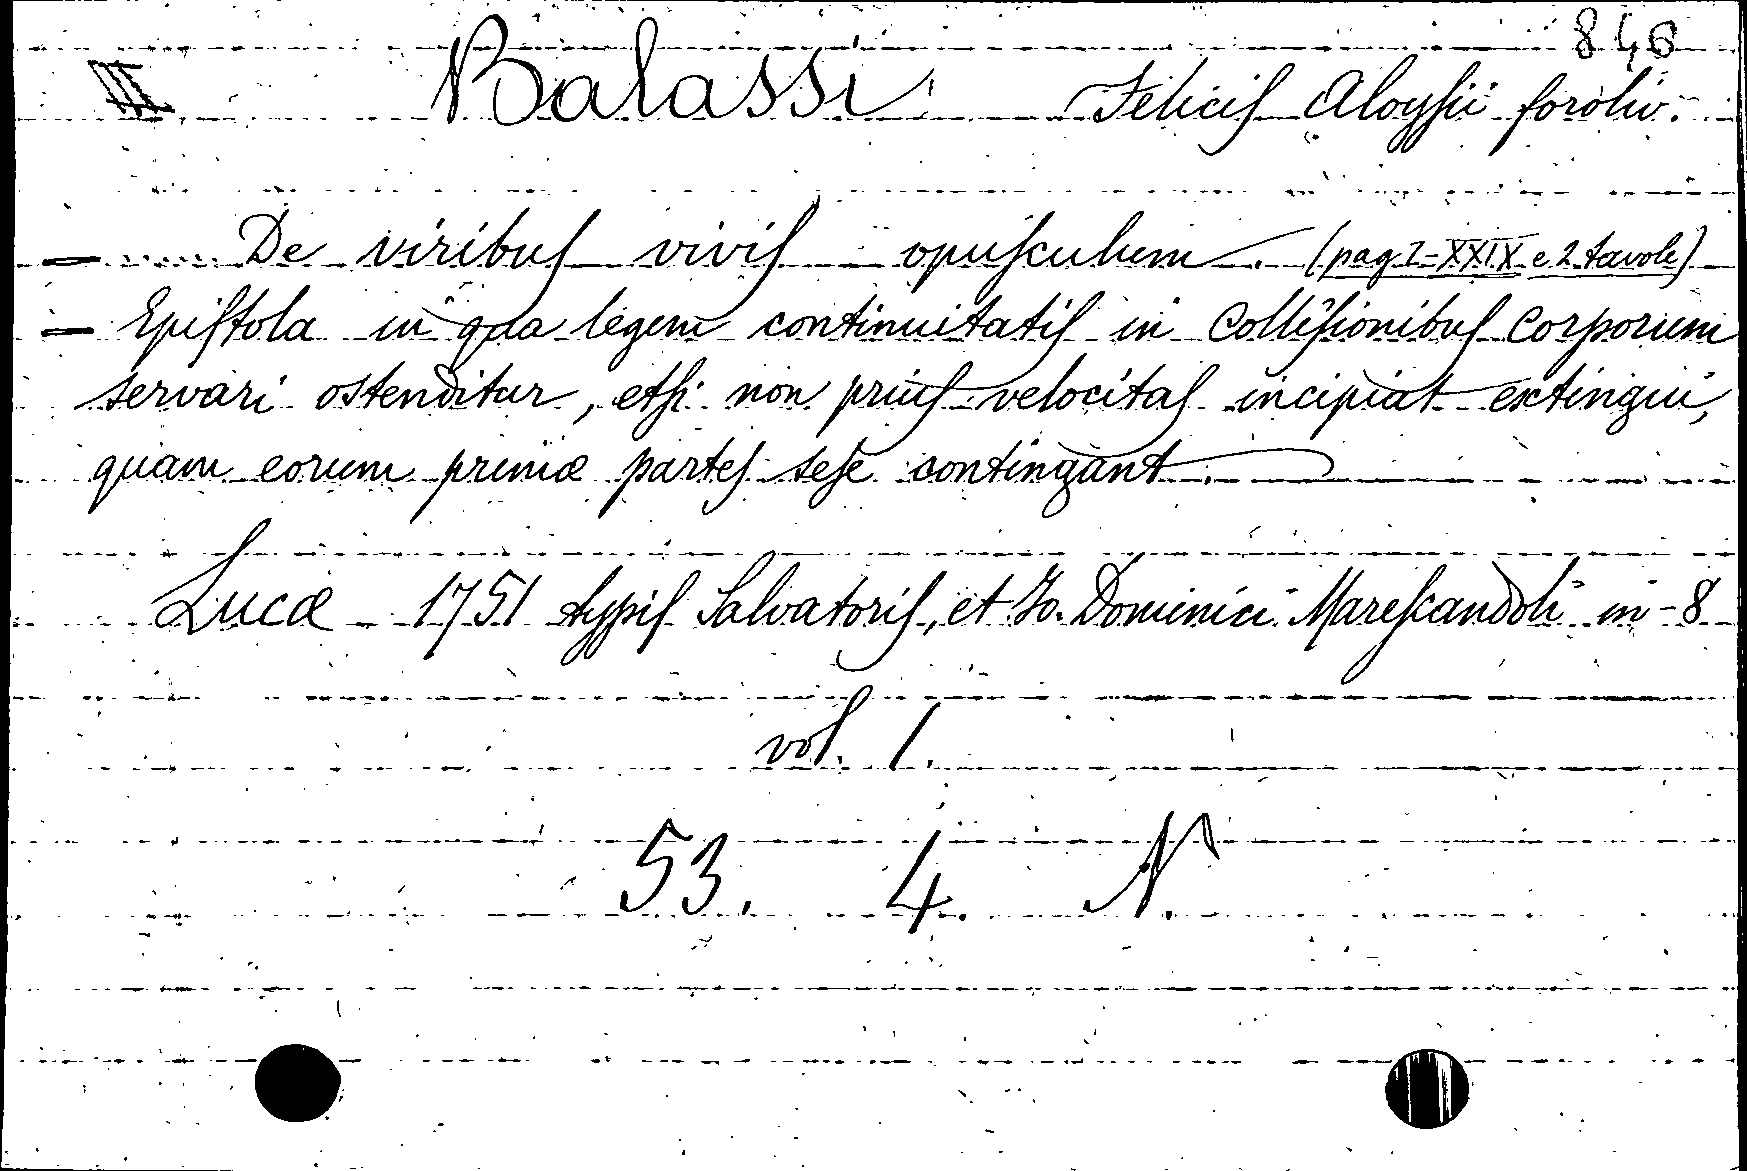 846
III Balassi Felicis Aloysii foroliv.
— De viribus vivis opusculum. (pag. I-XXIX e 2 tavole)
— Epistola in qua legem continuitatis in Collisionibus Corporum
servari ostenditur, etsi non prius velocitas incipiat extingui,
quam eorum primæ partes sese contingant.
Lucæ 1751 typis Salvatoris, et Jo. Dominici Marescandoli in-8
vol. 1.
53. 4. N.